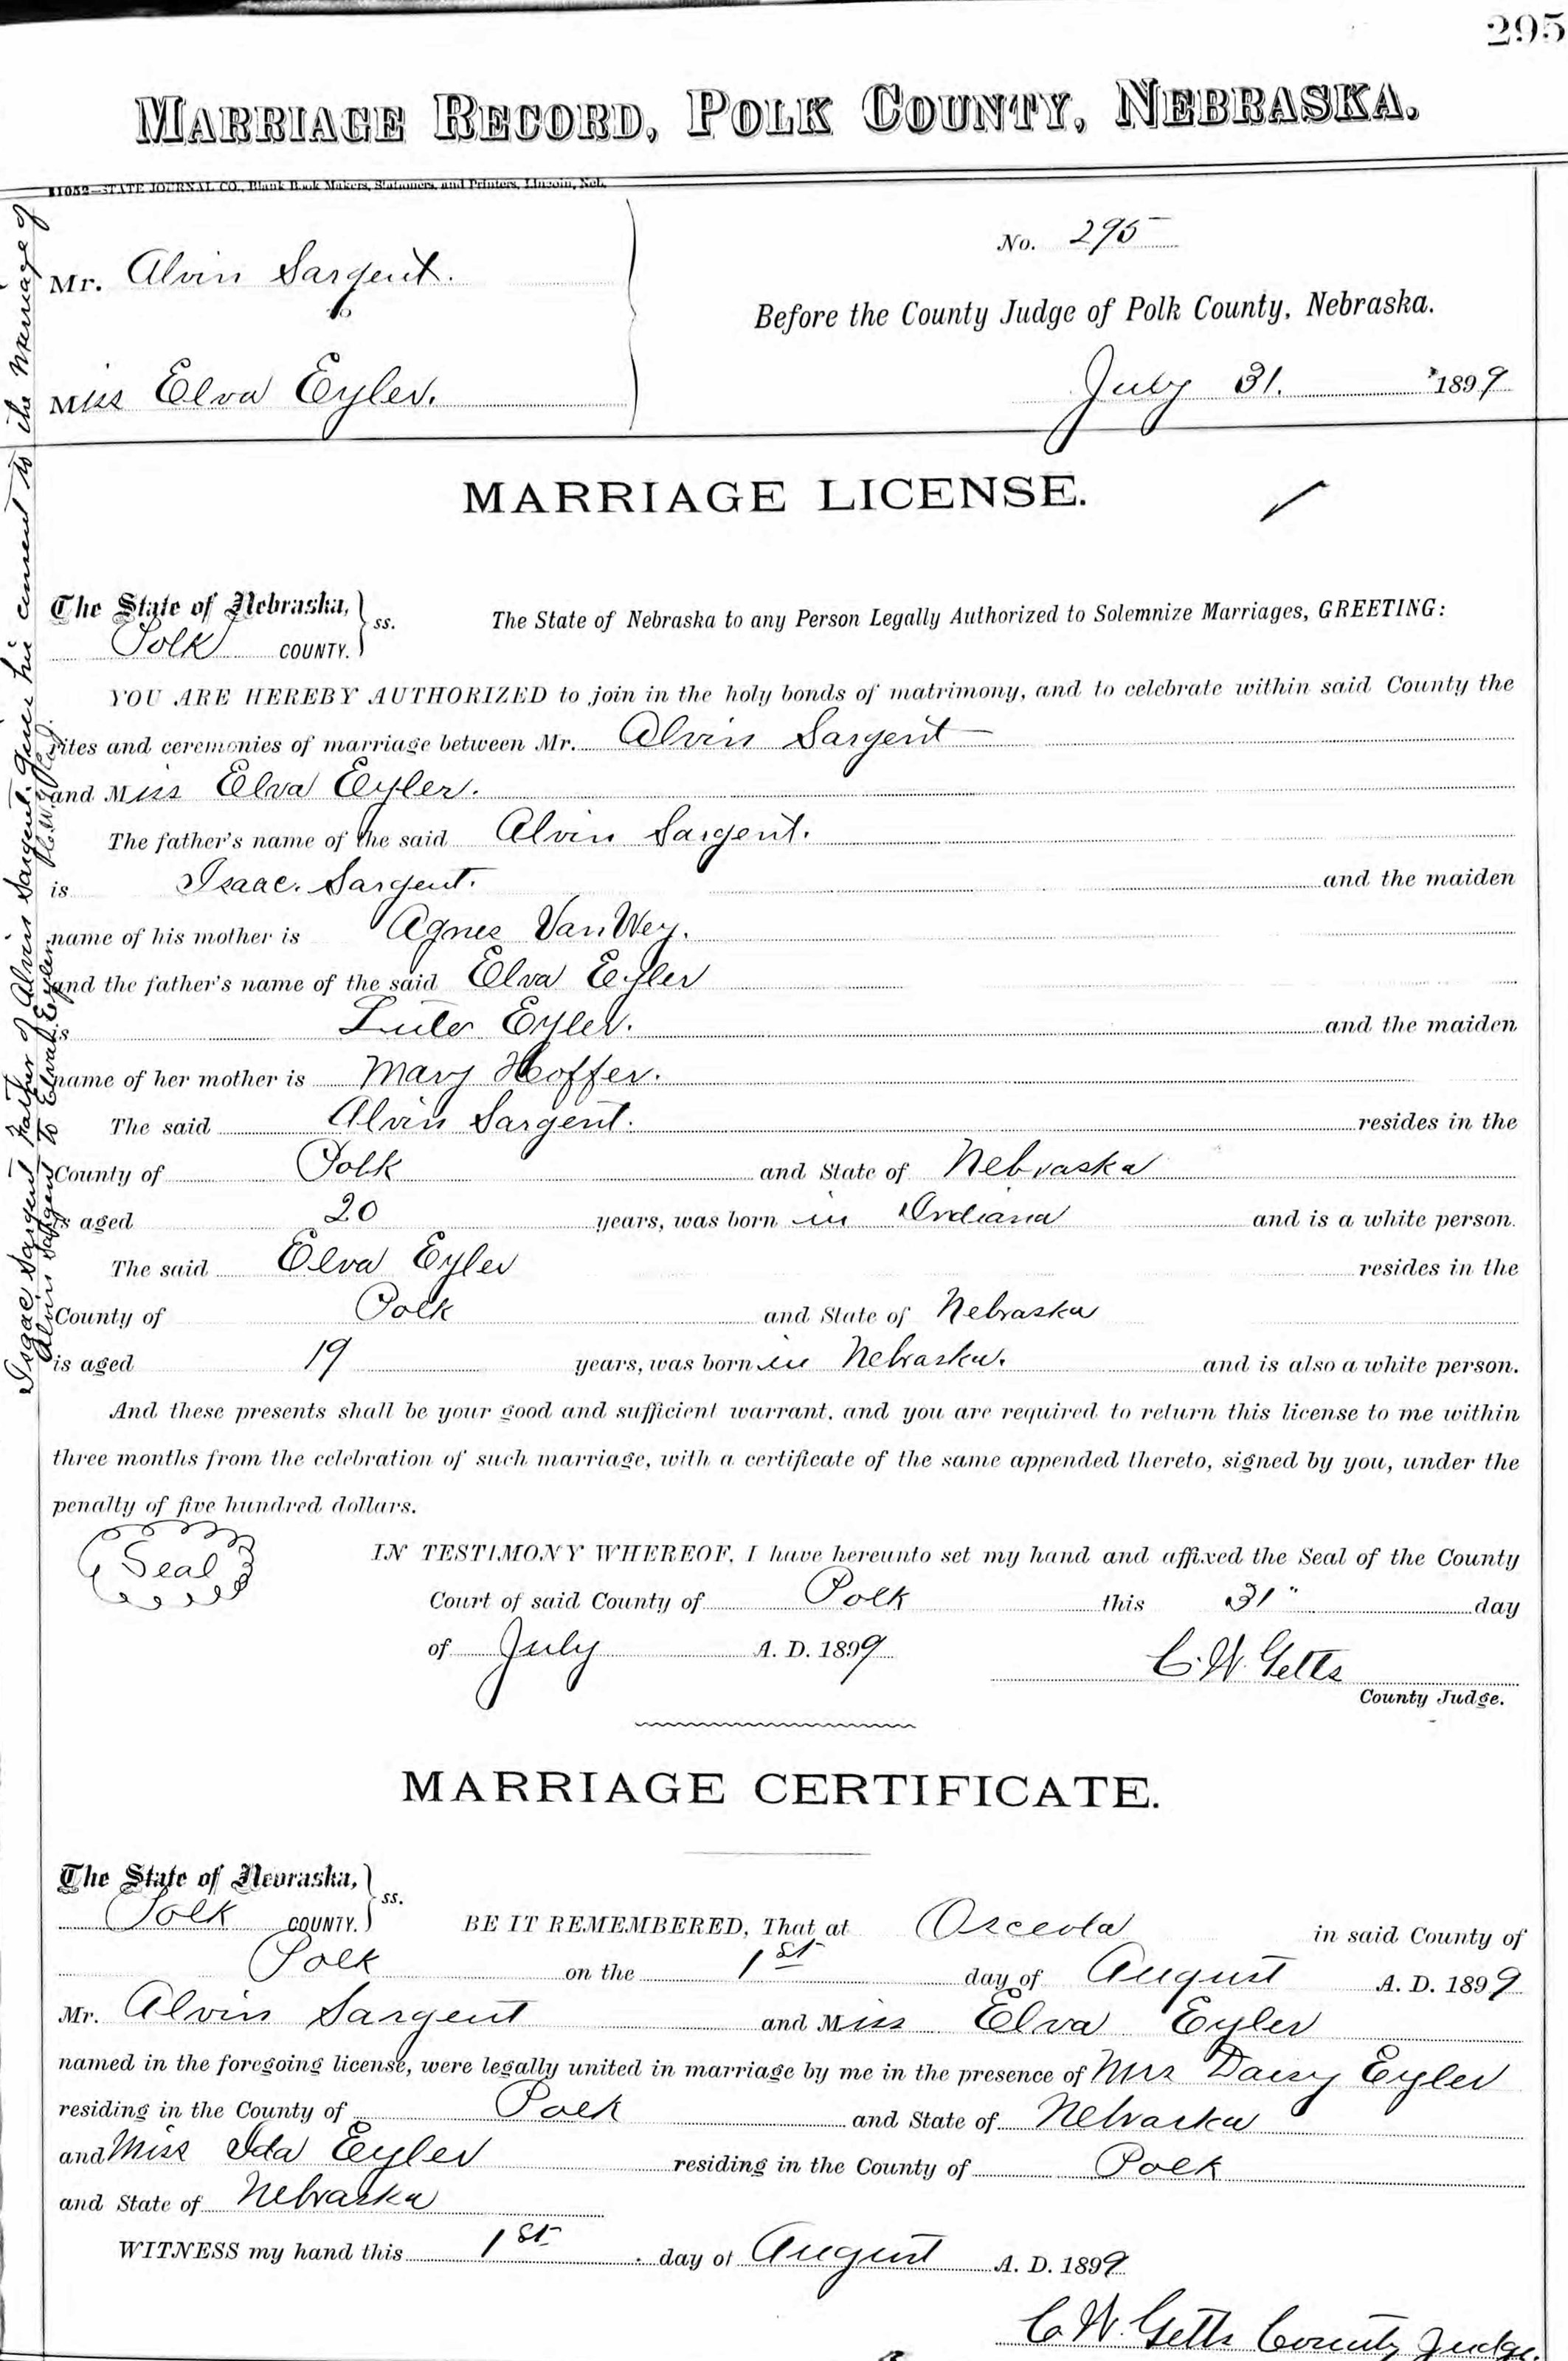 295
MARRIAGE RECORD, POLK COUNTY, NEBRASKA.
11052—STATE JOURNAL CO., Blank Book Makers, Stationers, and Printers, Lincoln, Neb.
Mr. Alvin Sargent.
to
Miss Elva Eyler.
No. 295
Before the County Judge of Polk County, Nebraska.
July 31. 1899
MARRIAGE LICENSE.
The State of Nebraska,
Polk COUNTY. ss.
The State of Nebraska to any Person Legally Authorized to Solemnize Marriages, GREETING:
YOU ARE HEREBY AUTHORIZED to join in the holy bonds of matrimony, and to celebrate within said County the
rites and ceremonies of marriage between Mr. Alvin Sargent
and Miss Elva Eyler.
The father's name of the said Alvin Sargent.
is Isaac. Sargent. and the maiden
name of his mother is Agnes VanWey.
and the father's name of the said Elva Eyler
is Luter Eyler. and the maiden
name of her mother is Mary Hoffer.
The said Alvin Sargent. resides in the
County of Polk and State of Nebraska
is aged 20 years, was born in Indiana and is a white person.
The said Elva Eyler resides in the
County of Polk and State of Nebraska
is aged 19 years, was born in Nebraska. and is also a white person.
And these presents shall be your good and sufficient warrant, and you are required to return this license to me within
three months from the celebration of such marriage, with a certificate of the same appended thereto, signed by you, under the
penalty of five hundred dollars.
Seal
IN TESTIMONY WHEREOF, I have hereunto set my hand and affixed the Seal of the County
Court of said County of Polk this 31" day
of July A. D. 1899
C. W. Getts
County Judge.
MARRIAGE CERTIFICATE.
The State of Nebraska,
Polk COUNTY. ss.
BE IT REMEMBERED, That at Osceola in said County of
Polk on the 1st day of August A. D. 1899
Mr. Alvin Sargent and Miss Elva Eyler
named in the foregoing license, were legally united in marriage by me in the presence of Mrs Daisy Eyler
residing in the County of Polk and State of Nebraska
and Miss Ida Eyler residing in the County of Polk
and State of Nebraska
WITNESS my hand this 1st day of August A. D. 1899
C. W. Getts County Judge.
Isaac Sargent Father of Alvin Sargent. gives his consent to the marriage of
Alvin Sargent to Elva Eyler.